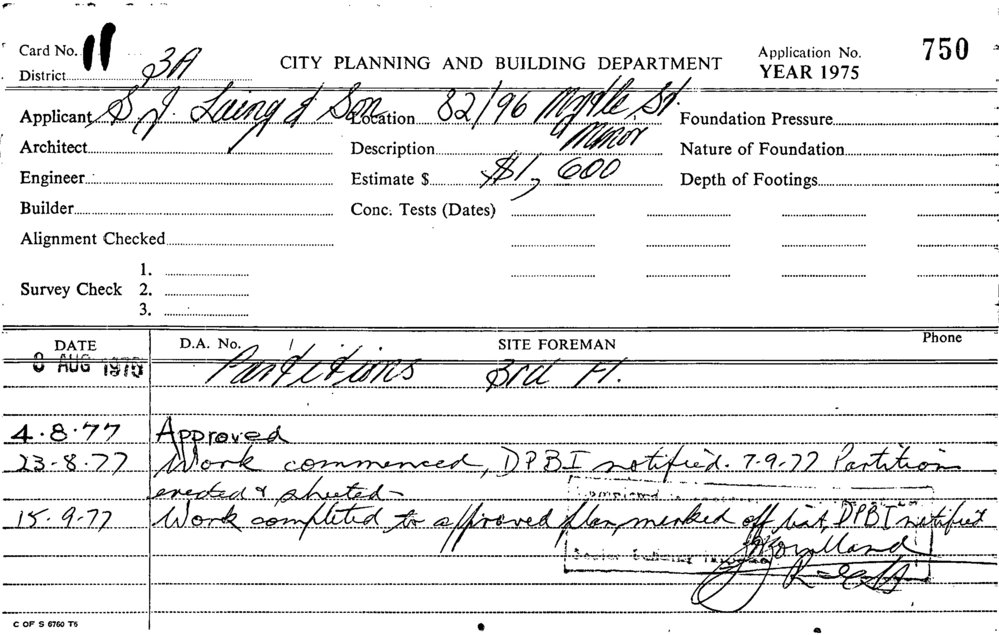 Card No. 11
District 3A
CITY PLANNING AND BUILDING DEPARTMENT
Application No. 750
YEAR 1975
Applicant S. J. Laing & Son
Location 82/96 Myrtle St.
Foundation Pressure
Architect
Description Minor
Nature of Foundation
Engineer
Estimate $ $1,600
Depth of Footings
Builder
Conc. Tests (Dates)
Alignment Checked
Survey Check
1.
2.
3.
DATE
D.A. No.
SITE FOREMAN
Phone
8 AUG 1975
Partitions 3rd Fl.
4.8.77 Approved
23-8.77 Work commenced, DPBI notified. 7-9-77 Partition
erected & sheeted-
15.9.77 Work completed to approved plan, marked off list, DPBI notified
Completed
Senior Building Inspector
C OF S 6760 T5